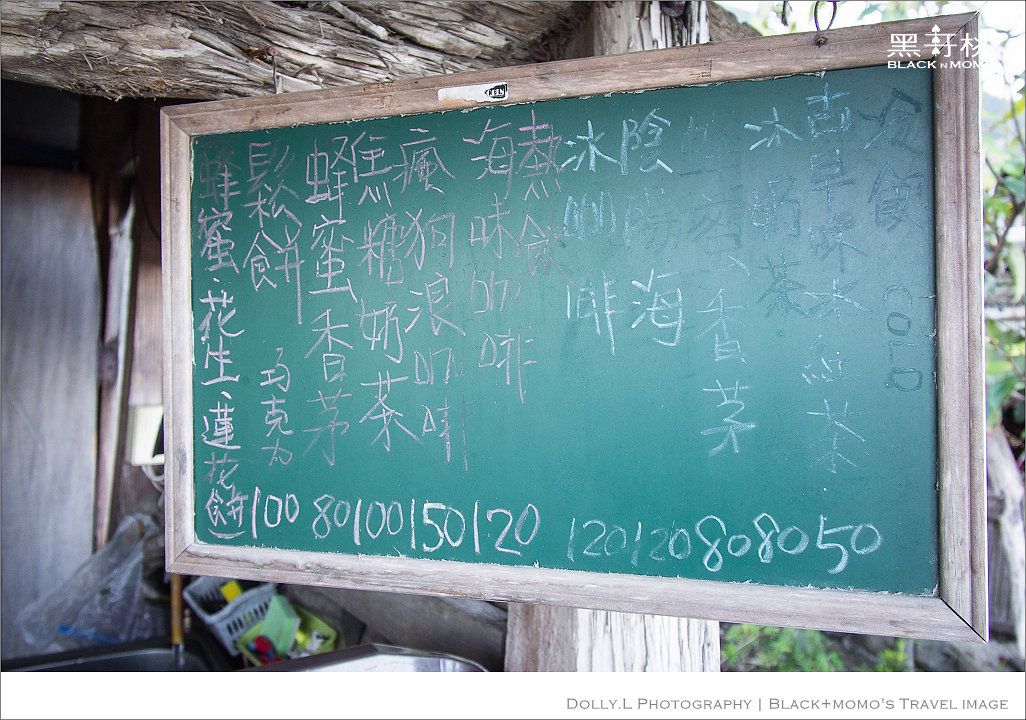 冷飲 COLD
古早味冰紅茶 50
冰奶茶 80
香茅 80
陰陽海 120
冰咖啡 120
熱飲
海味咖啡 120
瘋狗浪咖啡 150
焦糖奶茶 100
蜂蜜香茅 80
鬆餅 巧克力 100
蜂蜜、花生、蓮花餅
黑+木木
BLACK N MOMO
DOLLY.L PHOTOGRAPHY | BLACK+MOMO'S TRAVEL IMAGE